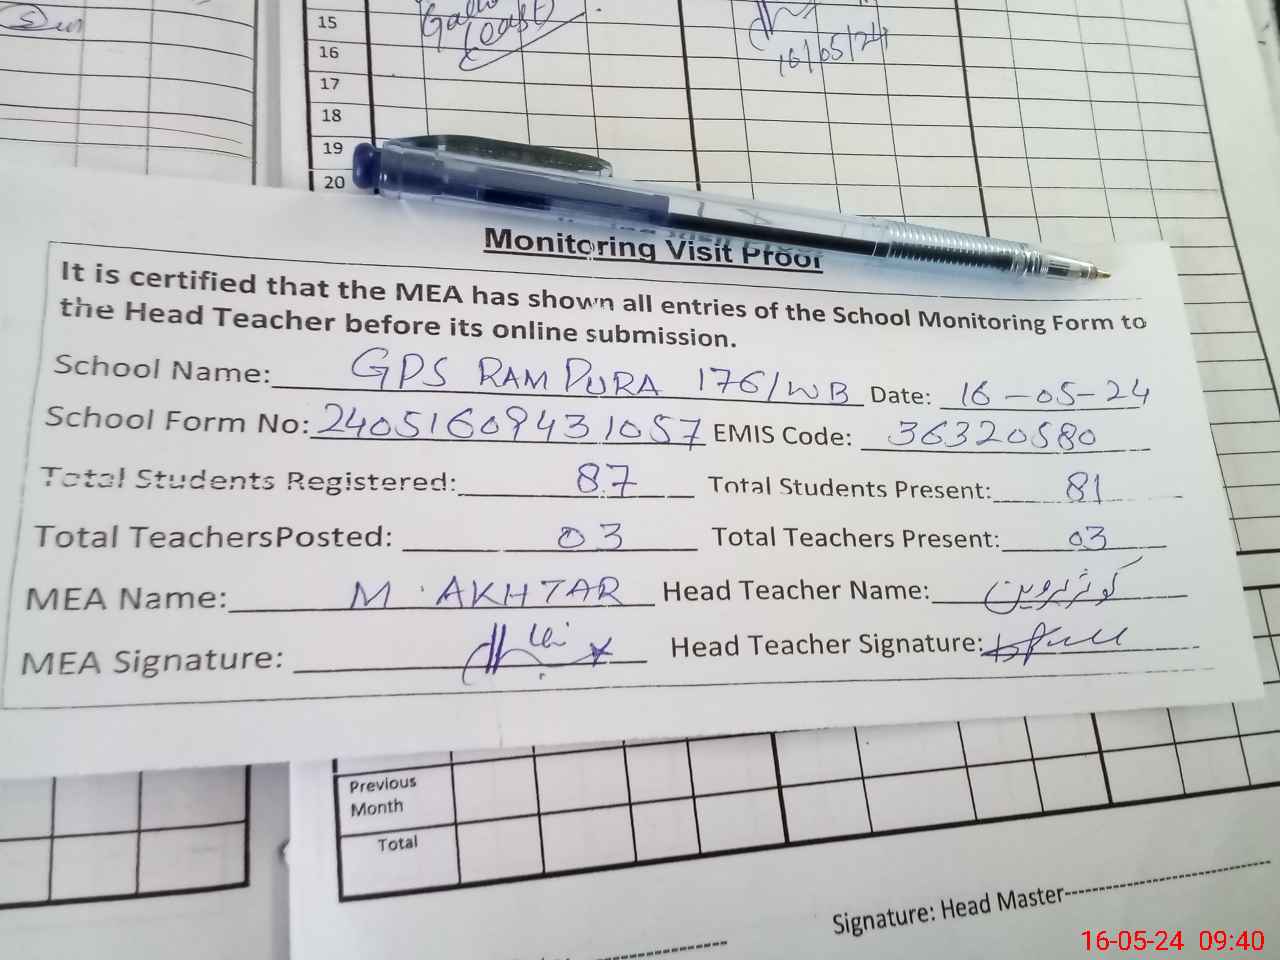 Sun
15
16
16/05/24
17
18
19
20
Monitoring Visit Proof
It is certified that the MEA has shown all entries of the School Monitoring Form to
the Head Teacher before its online submission.
School Name: GPS RAMPURA 176/WB Date: 16-05-24
School Form No: 24051609431057 EMIS Code: 36320580
Total Students Registered: 87 Total Students Present: 81
Total TeachersPosted: 03 Total Teachers Present: 03
MEA Name: M. AKHTAR Head Teacher Name: کوثر پروین
MEA Signature: Head Teacher Signature:
Previous
Month
Total
Signature: Head Master
16-05-24 09:40